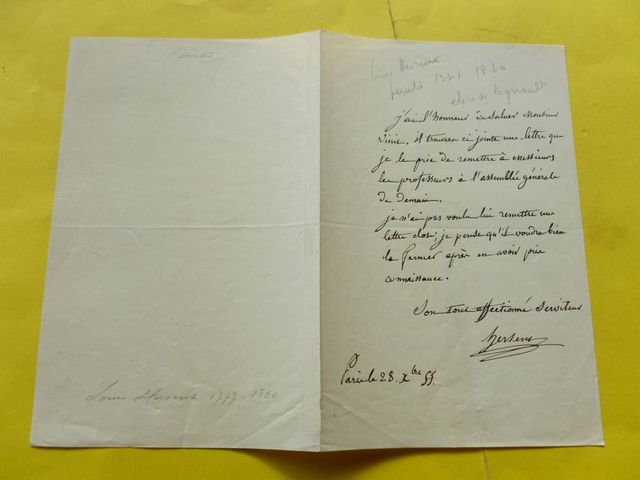 Peintre
Louis Hersent 1777-1860
Louis Hersent
peintre 1777 1860
élève de Regnault
j'ai l'honneur de saluer Monsieur
Vinit. il trouvera ci jointe une lettre que
je le prie de remettre à messieurs
les professeurs à l'assemblée générale
de demain.
je n'ai pas voulu lui remettre une
lettre close, je pense qu'il voudra bien
la fermer après en avoir pris
connaissance.
Son tout affectionné Serviteur
hersent
Paris le 28. Xbre 55.